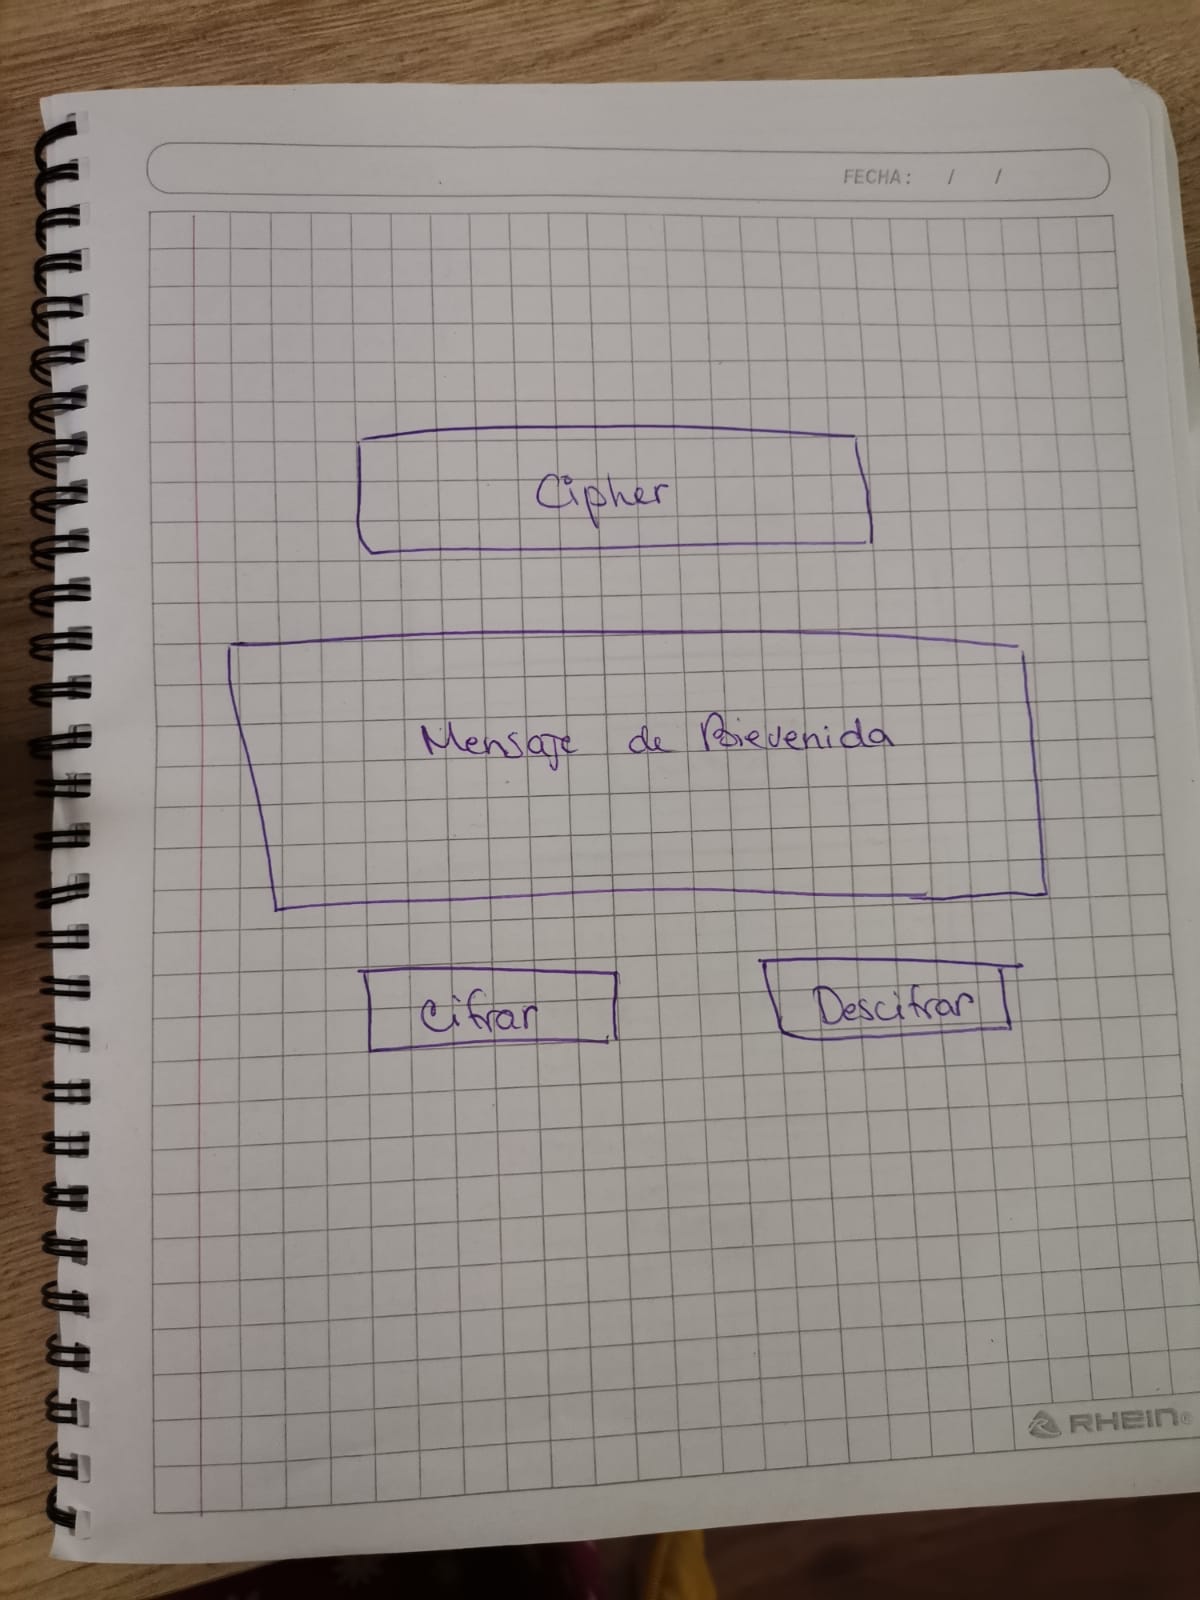 FECHA: / /
Cipher
Mensaje de Bievenida
Cifrar
Descifrar
RHEIN®